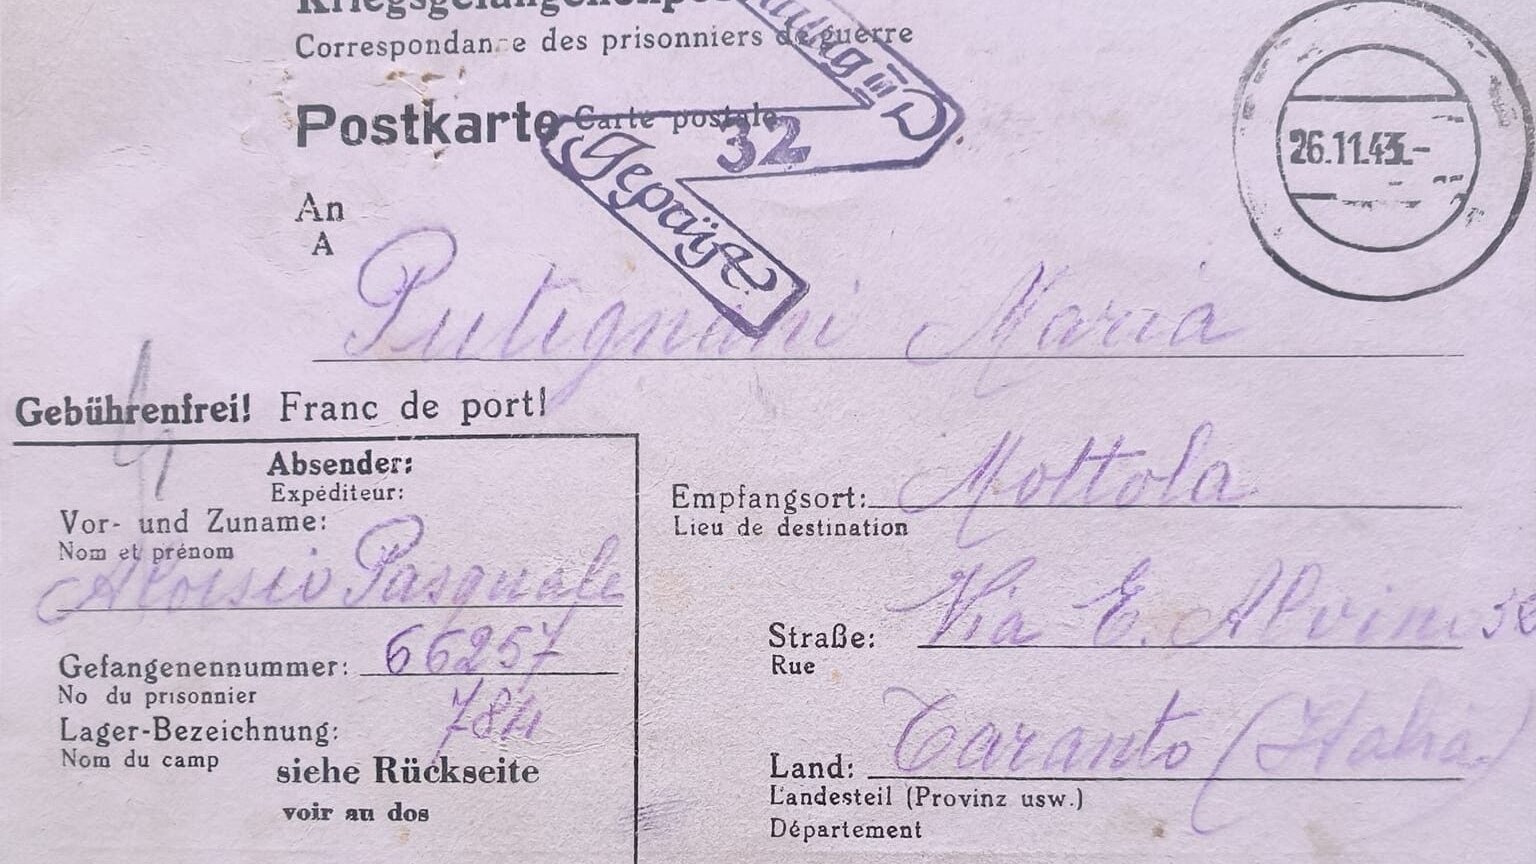 Kriegsgefangenenpost
Correspondance des prisonniers de guerre
Postkarte Carte postale
32
Geprüft
26.11.43.-
An
A
Putignani Maria
Gebührenfrei! Franc de port!
Absender:
Expéditeur:
Vor- und Zuname:
Nom et prénom
Aloisio Pasquale
Gefangenennummer: 66257
No du prisonnier
Lager-Bezeichnung:
Nom du camp
siehe Rückseite
voir au dos
Empfangsort: Mottola
Lieu de destination
Straße: Via E. Alvini
Rue
Land: Taranto (Italia)
Landesteil (Provinz usw.)
Département